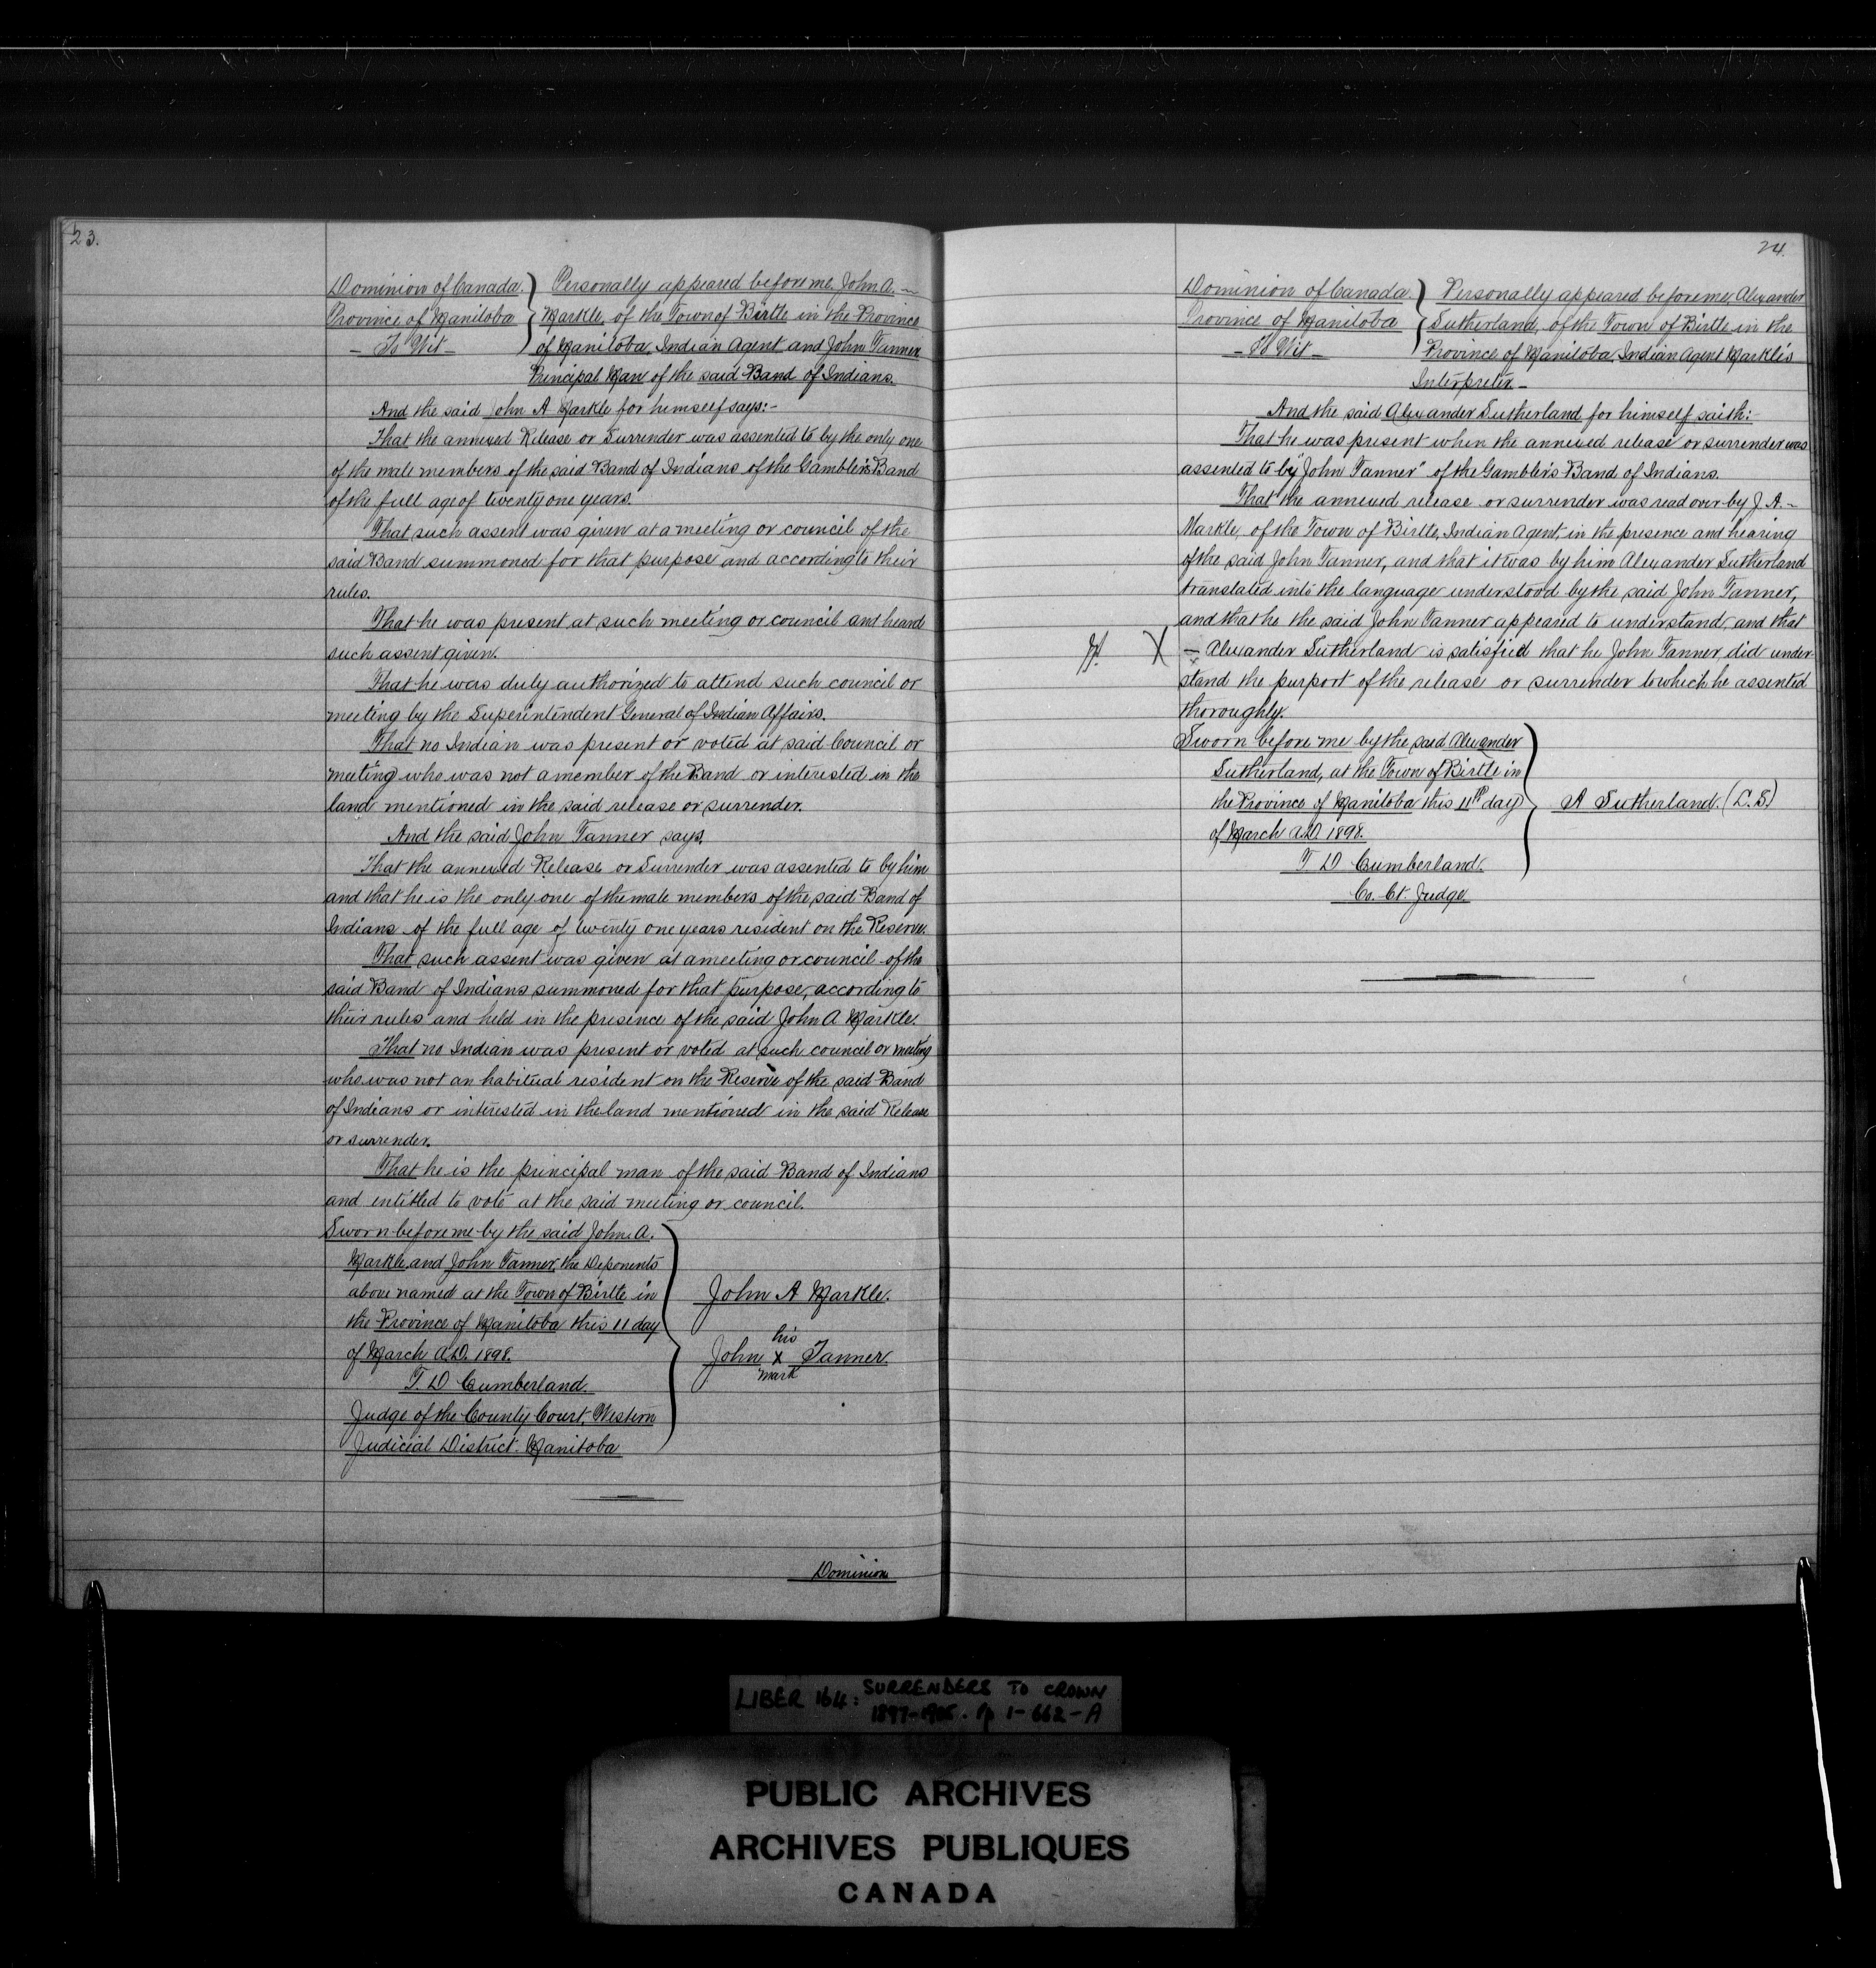 23.
Dominion of Canada.
Province of Manitoba
- To Wit -
Personally appeared before me, John A. -
Markle, of the Town of Birtle in the Province
of Manitoba, Indian Agent and John Tanner
Principal Man of the said Band of Indians.
And the said John A Markle for himself says:-
That the annexed Release or Surrender was assented to by the only one
of the male members of the said Band of Indians of the Gambler's Band
of the full age of twenty one years.
That such assent was given at a meeting or council of the
said Band summoned for that purpose and according to their
rules.
That he was present at such meeting or council and heard
such assent given.
That he was duly authorized to attend such council or
meeting by the Superintendent General of Indian Affairs.
That no Indian was present or voted at said Council or
meeting who was not a member of the Band or interested in the
land mentioned in the said release or surrender.
And the said John Tanner says,
That the annexed Release or Surrender was assented to by him
and that he is the only one of the male members of the said Band of
Indians of the full age of twenty one years resident on the Reserve.
That such assent was given at a meeting or council of the
said Band of Indians summoned for that purpose, according to
their rules and held in the presence of the said John A Markle.
That no Indian was present or voted at such council or meeting
who was not an habitual resident on the Reserve of the said Band
of Indians or interested in the land mentioned in the said Release
or surrender.
That he is the principal man of the said Band of Indians
and entitled to vote at the said meeting or council.
Sworn before me by the said John A.
Markle and John Tanner, the Deponents
above named at the Town of Birtle in
the Province of Manitoba this 11 day
of March A.D. 1898.
T. D Cumberland.
Judge of the County Court, Western
Judicial District. Manitoba
John A Markle.
his
John X Tanner.
mark
Dominion
24.
Dominion of Canada.
Province of Manitoba
- To Wit -
Personally appeared before me, Alexander
Sutherland, of the Town of Birtle in the
Province of Manitoba, Indian Agent Markle's
Interpreter -
And the said Alexander Sutherland for himself saith:
That he was present when the annexed release or surrender was
assented to by "John Tanner" of the Gambler's Band of Indians.
That the annexed release or surrender was read over by J. A. -
Markle, of the Town of Birtle, Indian Agent, in the presence and hearing
of the said John Tanner, and that it was by him Alexander Sutherland
translated into the language understood by the said John Tanner,
and that he the said John Tanner appeared to understand, and that
X - Alexander Sutherland is satisfied that he John Tanner, did under
stand the purport of the release or surrender to which he assented
thoroughly.
Sworn before me by the said Alexander
Sutherland, at the Town of Birtle in
the Province of Manitoba this 11th day
of March A.D. 1898.
T. D Cumberland.
Co. Ct. Judge.
A Sutherland. (L.S.)
LIBER 164: SURRENDERS TO CROWN
1897-1905. Pp 1-662-A
PUBLIC ARCHIVES
ARCHIVES PUBLIQUES
CANADA